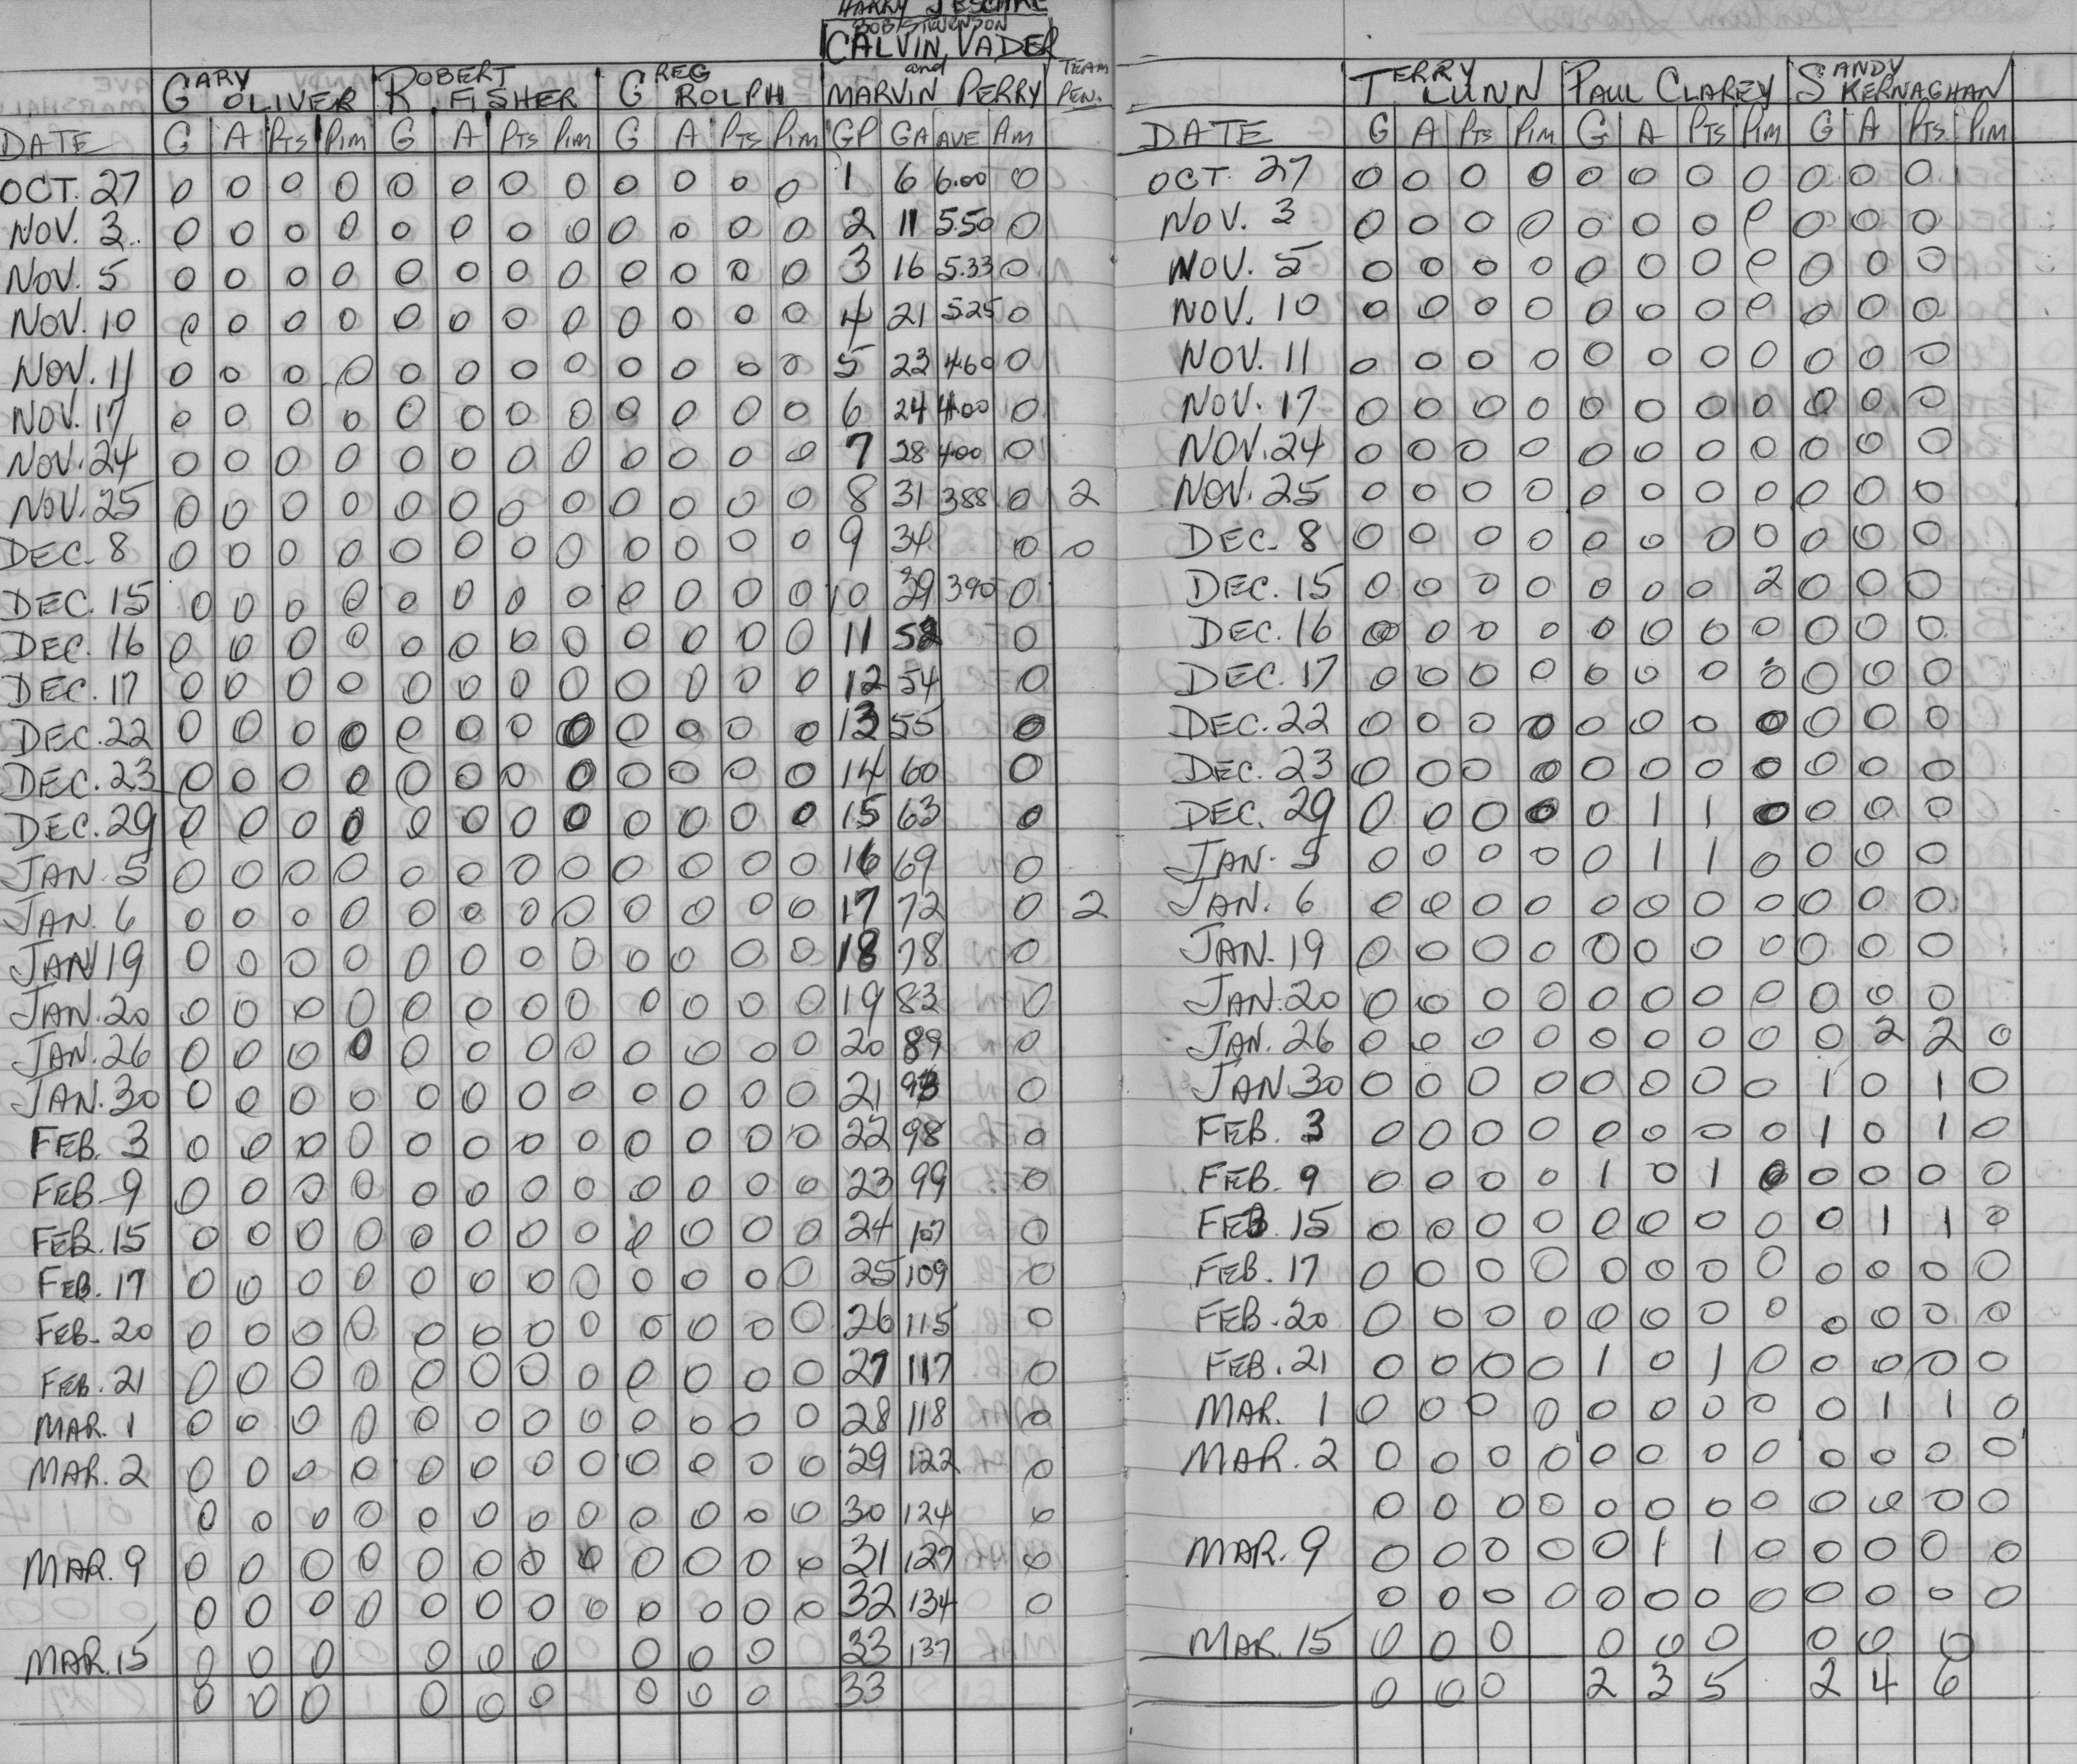 HARRY JESCHKE
BOB STEVENSON
CALVIN VADER
and
GARY OLIVER ROBERT FISHER GREG ROLPH MARVIN PERRY TEAM PEN.
DATE G A PTS PIM G A PTS PIM G A PTS PIM GP GA AVE PIM
OCT. 27 0 0 0 0 0 0 0 0 0 0 0 0 1 6 6.00 0
NOV. 3 0 0 0 0 0 0 0 0 0 0 0 0 2 11 5.50 0
NOV. 5 0 0 0 0 0 0 0 0 0 0 0 0 3 16 5.33 0
NOV. 10 0 0 0 0 0 0 0 0 0 0 0 0 4 21 5.25 0
NOV. 11 0 0 0 0 0 0 0 0 0 0 0 0 5 23 4.60 0
NOV. 17 0 0 0 0 0 0 0 0 0 0 0 0 6 24 4.00 0
NOV. 24 0 0 0 0 0 0 0 0 0 0 0 0 7 28 4.00 0
NOV. 25 0 0 0 0 0 0 0 0 0 0 0 0 8 31 3.88 0 2
DEC. 8 0 0 0 0 0 0 0 0 0 0 0 0 9 34 0 0
DEC. 15 0 0 0 0 0 0 0 0 0 0 0 0 10 39 3.90 0
DEC. 16 0 0 0 0 0 0 0 0 0 0 0 0 11 52 0
DEC. 17 0 0 0 0 0 0 0 0 0 0 0 0 12 54 0
DEC. 22 0 0 0 0 0 0 0 0 0 0 0 0 13 55 0
DEC. 23 0 0 0 0 0 0 0 0 0 0 0 0 14 60 0
DEC. 29 0 0 0 0 0 0 0 0 0 0 0 0 15 63 0
JAN. 5 0 0 0 0 0 0 0 0 0 0 0 0 16 69 0
JAN. 6 0 0 0 0 0 0 0 0 0 0 0 0 17 72 0 2
JAN 19 0 0 0 0 0 0 0 0 0 0 0 0 18 78 0
JAN. 20 0 0 0 0 0 0 0 0 0 0 0 0 19 83 0
JAN. 26 0 0 0 0 0 0 0 0 0 0 0 0 20 89 0
JAN. 30 0 0 0 0 0 0 0 0 0 0 0 0 21 93 0
FEB. 3 0 0 0 0 0 0 0 0 0 0 0 0 22 98 0
FEB. 9 0 0 0 0 0 0 0 0 0 0 0 0 23 99 0
FEB. 15 0 0 0 0 0 0 0 0 0 0 0 0 24 107 0
FEB. 17 0 0 0 0 0 0 0 0 0 0 0 0 25 109 0
FEB. 20 0 0 0 0 0 0 0 0 0 0 0 0 26 115 0
FEB. 21 0 0 0 0 0 0 0 0 0 0 0 0 27 117 0
MAR. 1 0 0 0 0 0 0 0 0 0 0 0 0 28 118 0
MAR. 2 0 0 0 0 0 0 0 0 0 0 0 0 29 122 0
0 0 0 0 0 0 0 0 0 0 0 0 30 124 0
MAR. 9 0 0 0 0 0 0 0 0 0 0 0 0 31 127 0
0 0 0 0 0 0 0 0 0 0 0 0 32 134 0
MAR. 15 0 0 0 0 0 0 0 0 0 33 137
0 0 0 0 0 0 0 0 0 33
TERRY LUNN PAUL CLAREY SANDY KERNAGHAN
DATE G A PTS PIM G A PTS PIM G A PTS PIM
OCT. 27 0 0 0 0 0 0 0 0 0 0 0
NOV. 3 0 0 0 0 0 0 0 0 0 0 0
NOV. 5 0 0 0 0 0 0 0 0 0 0 0
NOV. 10 0 0 0 0 0 0 0 0 0 0 0
NOV. 11 0 0 0 0 0 0 0 0 0 0 0
NOV. 17 0 0 0 0 0 0 0 0 0 0 0
NOV. 24 0 0 0 0 0 0 0 0 0 0 0
NOV. 25 0 0 0 0 0 0 0 0 0 0 0
DEC. 8 0 0 0 0 0 0 0 0 0 0 0
DEC. 15 0 0 0 0 0 0 0 2 0 0 0
DEC. 16 0 0 0 0 0 0 0 0 0 0 0
DEC. 17 0 0 0 0 0 0 0 0 0 0 0
DEC. 22 0 0 0 0 0 0 0 0 0 0 0
DEC. 23 0 0 0 0 0 0 0 0 0 0 0
DEC. 29 0 0 0 0 0 1 1 0 0 0 0
JAN. 5 0 0 0 0 0 1 1 0 0 0 0
JAN. 6 0 0 0 0 0 0 0 0 0 0 0
JAN. 19 0 0 0 0 0 0 0 0 0 0 0
JAN. 20 0 0 0 0 0 0 0 0 0 0 0
JAN. 26 0 0 0 0 0 0 0 0 0 2 2 0
JAN. 30 0 0 0 0 0 0 0 0 1 0 1 0
FEB. 3 0 0 0 0 0 0 0 0 1 0 1 0
FEB. 9 0 0 0 0 1 0 1 0 0 0 0 0
FEB 15 0 0 0 0 0 0 0 0 0 1 1 0
FEB. 17 0 0 0 0 0 0 0 0 0 0 0 0
FEB. 20 0 0 0 0 0 0 0 0 0 0 0 0
FEB. 21 0 0 0 0 1 0 1 0 0 0 0 0
MAR. 1 0 0 0 0 0 0 0 0 0 1 1 0
MAR. 2 0 0 0 0 0 0 0 0 0 0 0 0
0 0 0 0 0 0 0 0 0 0 0 0
MAR. 9 0 0 0 0 0 1 1 0 0 0 0 0
0 0 0 0 0 0 0 0 0 0 0 0
MAR. 15 0 0 0 0 0 0 0 0 0
0 0 0 2 3 5 2 4 6